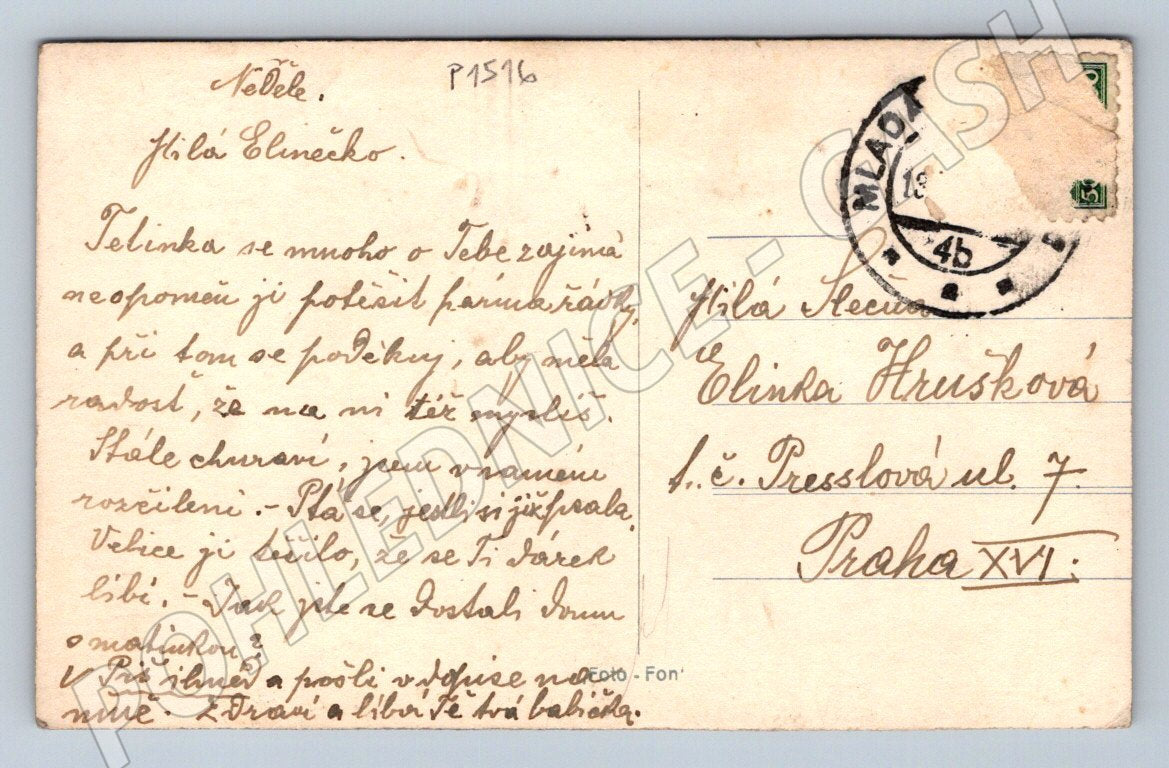 Neděle.
P1516
Milá Elinečko.
Telinka se mnoho o Tebe zajímá
neopomeň ji potěšit párma řádky,
a při tom se poděkuj, aby měla
radost, že na ni též myslíš.
Stále churaví, jsem v samém
rozčileni. - Ptá se, jestli si již psala.
Velice ji těšilo, že se Ti dárek
líbí. - Jak jste se dostali domu
s matinkou?
Piš ihned a pošli v dopise na
mně. Zdraví a líbá Tě tvá babička.
MLADÁ
18
4b
5
Milá Slečna
Elinka Hrušková
t. č. Presslová ul. 7.
Praha XVI.
Foto - Fon
POHLEDNICE - CASH